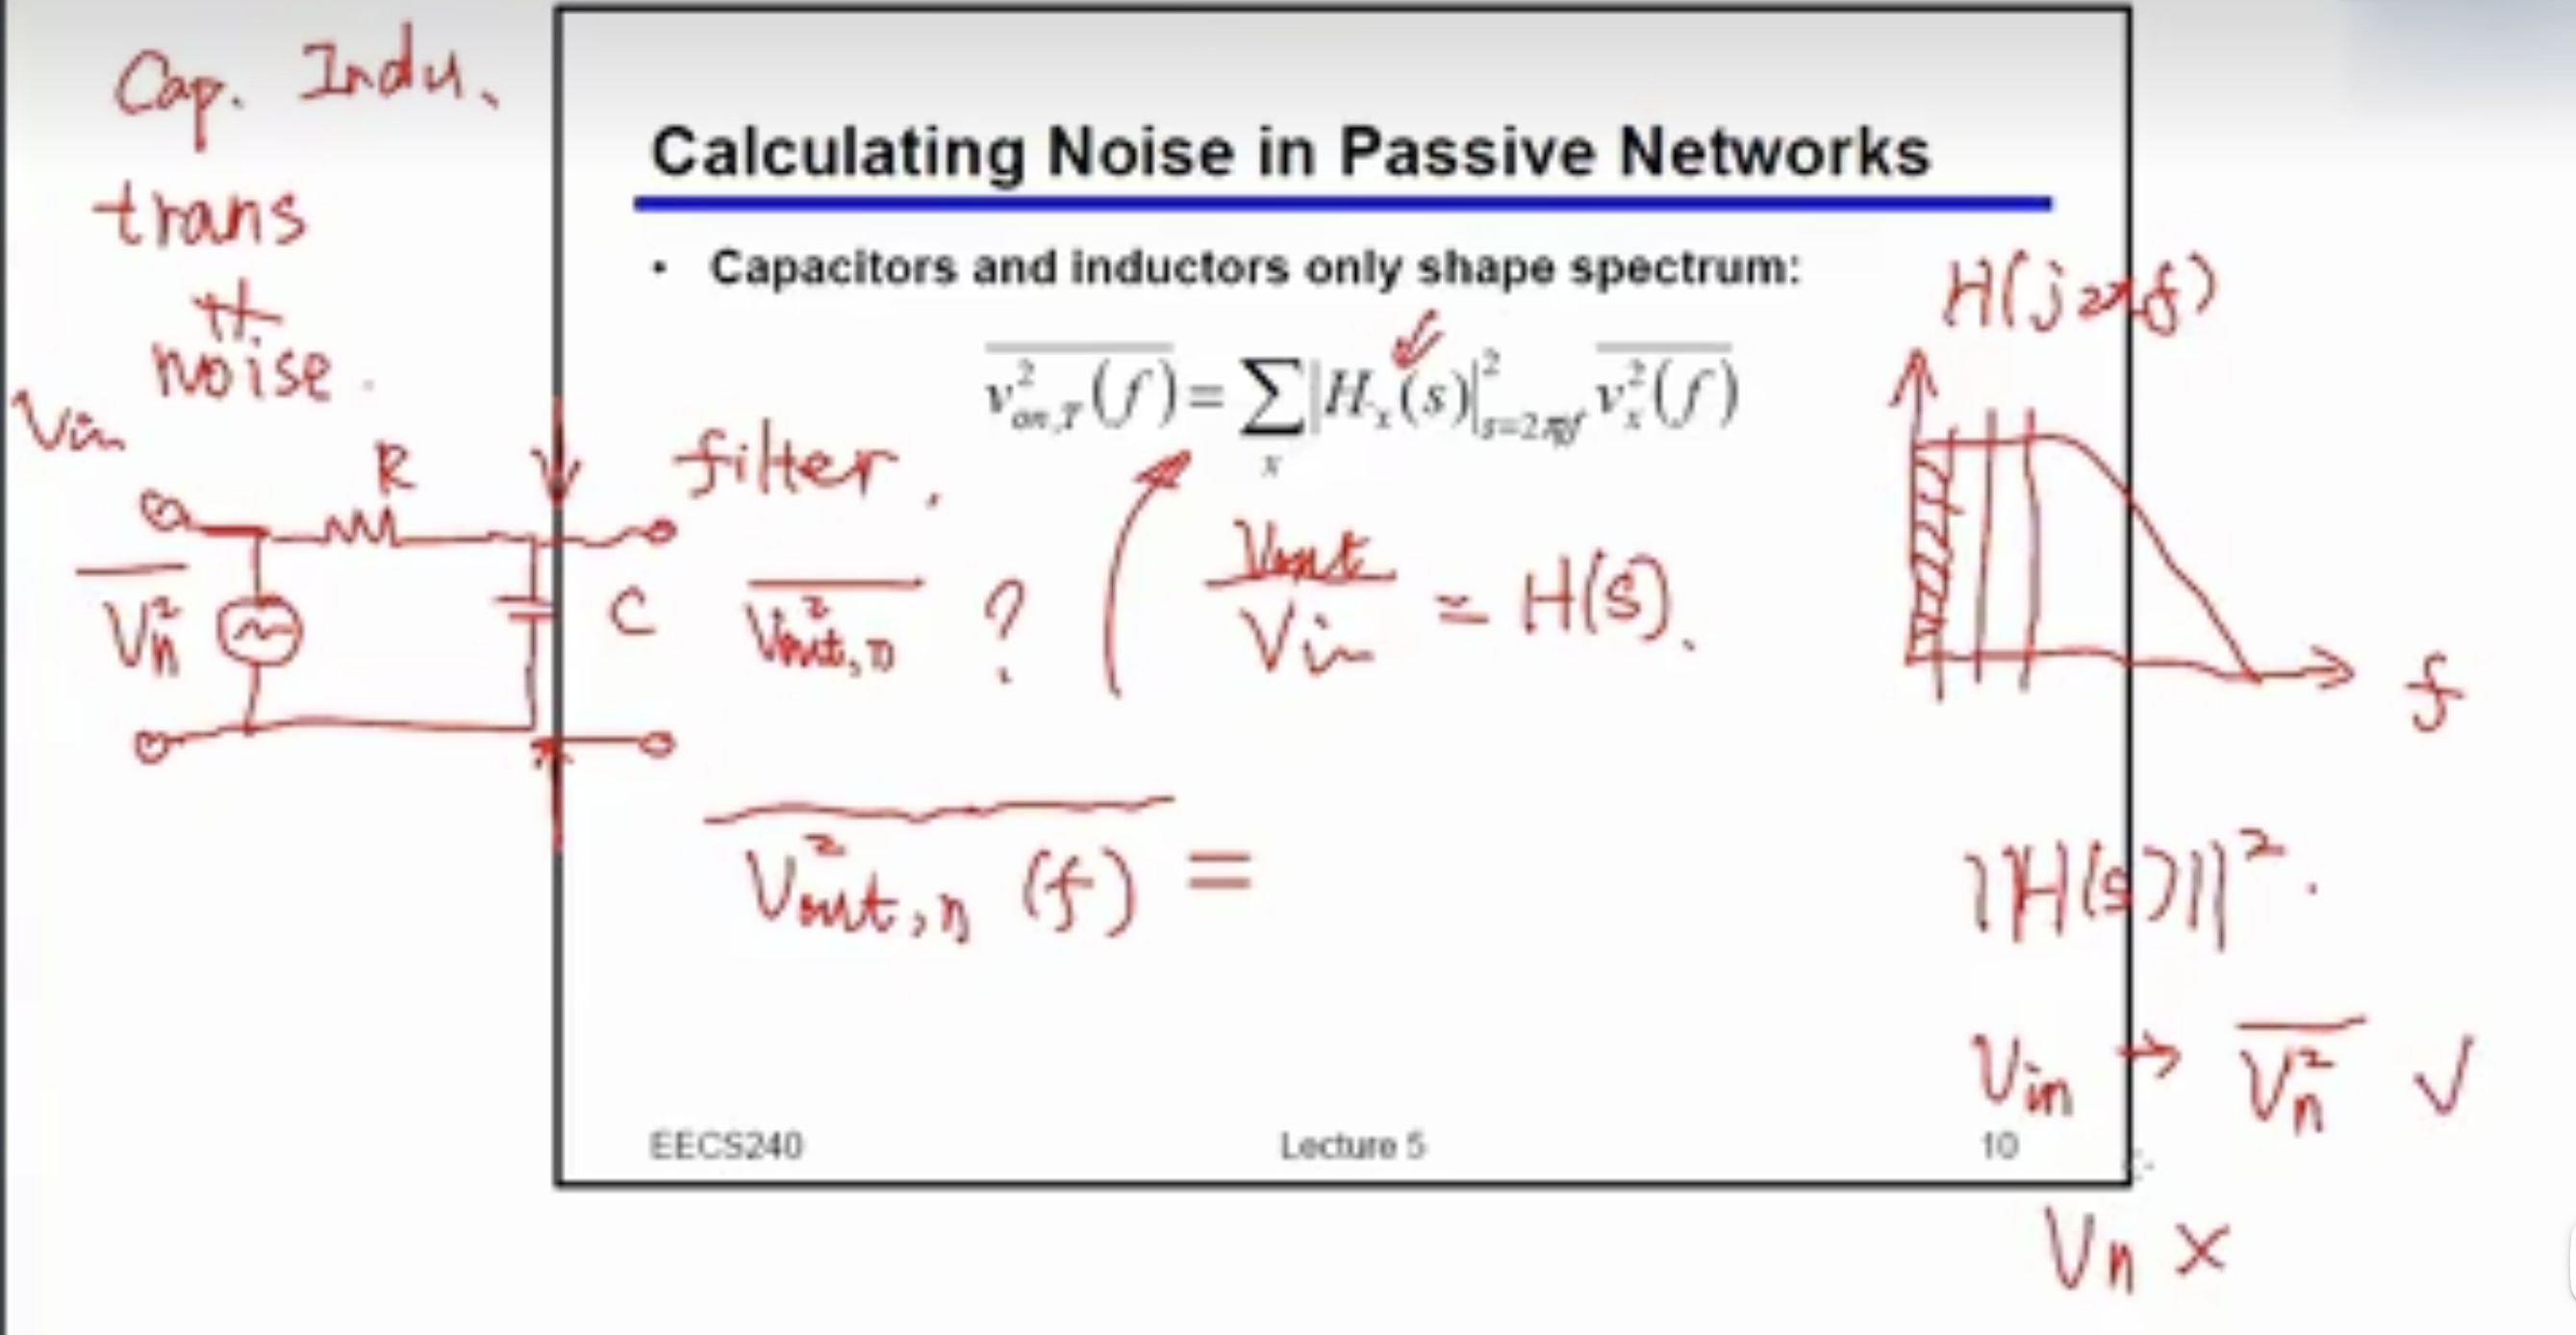 Cap. Indu.
trans
noise.
Vin
R
C
V̅n²
Calculating Noise in Passive Networks
• Capacitors and inductors only shape spectrum:
v²on,T(f) = Σx |Hx(s)|²s=2πjf v²x(f)
filter.
V²out,n ?
Vout/Vin = H(s).
V²out,n (f) =
H(j2πf)
f
|H(s)|².
Vin → Vn² ✓
Vn ×
EECS240
Lecture 5
10